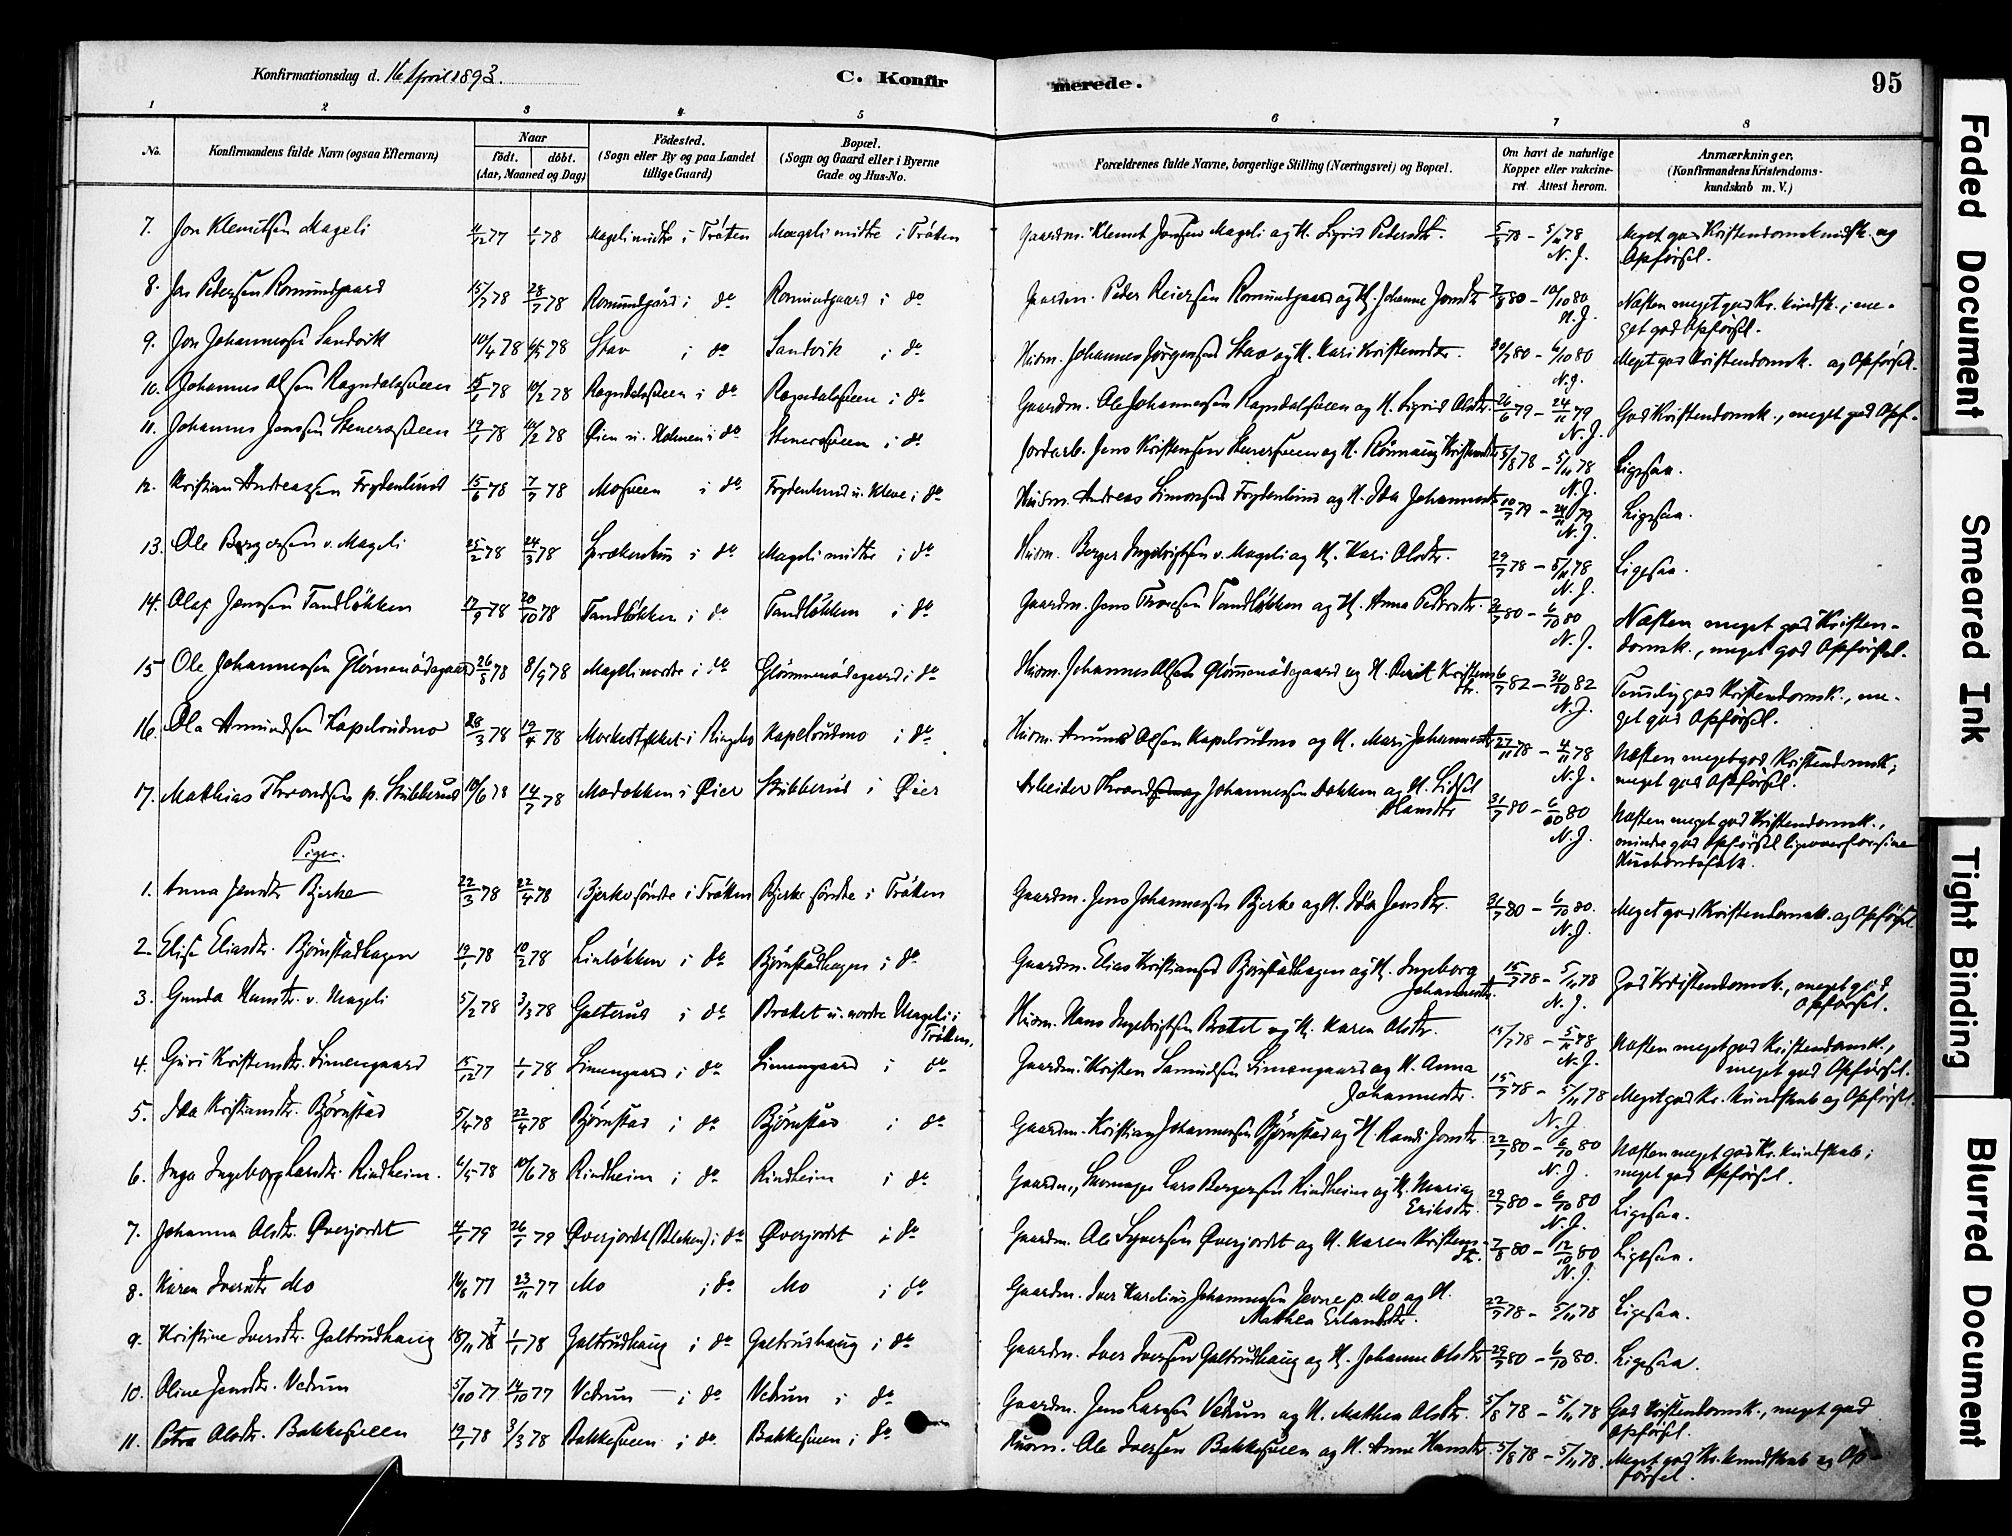 Konfirmationsdag d. 16 April 1893.
C. Konfirmerede.
95
1 2 3 4 5 6 7 8
No. Konfirmandens fulde Navn (ogsaa Efternavn)
Naar
født. døbt.
(Aar, Maaned og Dag)
Fødested.
(Sogn eller By og paa Landet
tillige Gaard)
Bopæl.
(Sogn og Gaard eller i Byerne
Gade og Hus-No.
Forældrenes fulde Navne, borgerlige Stilling (Næringsvei) og Bopæl.
Om havt de naturlige
Kopper eller vakcine-
ret. Attest herom.
Anmærkninger.
(Konfirmandens Kristendoms-
kundskab m. V.)
7. Jon Klemetsen Mageli 4/12 77 1/1 78 Mageli midtre i Tråtten Mageli midtre i Tråtten Gaardm. Klemet Jonsen Mageli og H. Sigrid Pedersdtr. 5/8 78 – 5/11 78 N.J. Meget god Kristendomskundsk. og
Opførsel.
8. Jon Pedersen Romundgaard 15/7 78 28/7 78 Romundgård i do Romundgaard i do Gaardm. Peder Reiersen Romundgaard og H. Johanne Jonsdtr. 7/8 80 – 10/10 80 N.J. Næsten meget god Kr. kundsk., me-
get god Opførsel.
9. Jon Johannessen Sandvik 10/4 78 Stav i do Sandvik i do Husm. Johannes Jørgensen Stav og H. Kari Kristensdtr. 6/10 80 N.J. Meget god Kristendomsk. og Opførsel.
10. Johannes Olsen Ragndalssveen 10/2 78 Ragndalssveen i do Ragndalssveen i do Gaardm. Ole Johannessen Ragndalssveen og H. Sigrid Olsdtr. 26/6 79 – 24/11 79 N.J. God Kristendomsk., meget god Opf.
11. Johannes Jenssen Stenerssveen 19/1 78 10/2 78 Øien u. Holmen i do Stenerssveen i do Jordarb. Jens Kristensen Stenerssveen og H. Rønnaug Kristensdtr. 5/8 78 – 5/11 78 N.J. Ligesaa.
12. Kristian Andreassen Frydenlund 15/6 78 7/7 78 Mosveen i do Frydenlund u. Kleve i do Husm. Andreas Simonsen Frydenlund og H. Ida Johannesdtr. 10/7 79 – 24/11 79 N.J. Ligesaa.
13. Ole Bergersen v. Mageli 25/2 78 24/3 78 i do Mageli midtre i do Husm. Berger Ingebrigtsen v. Mageli og H. Kari Olsdtr. 29/7 78 – 5/11 78 N.J. Ligesaa.
14. Olaf Jenssen Tandløkken 17/9 78 20/10 78 Tandløkken i do Tandløkken i do Gaardm. Jens Thoresen Tandløkken og H. Anna Pedersdtr. 31/7 80 – 6/10 80 N.J. Næsten meget god Kristen-
domsk., meget god Opførsel.
15 Ole Johannessen Glømmenødegaard 26/8 78 8/9 78 Mageli nordre i do Glømmenødegaard i do Husm. Johannes Olsen Glømmenødegaard og H. Berit Kristens-
dtr. 6/7 82 – 30/10 82 N.J. Temmelig god Kristendomsk., me-
get god Opførsel.
16. Ole Amundsen Kapelrudmo 28/3 78 19/4 78 i Ringebo Kapelrudmo i do Husm. Amund Olsen Kapelrudmo og H. Mari Johannesdtr. 27/11 78 – 4/11 78 N.J. Næsten meget god Kristendomsk.,
meget god Opførsel.
17. Mathias Throndsen p. Stubberud 10/6 78 14/7 78 Modokken i Øier Stubberud i Øier Arbeider Thrond Johannessen Dokken og H. Lisbet
Hansdtr. 31/7 80 – 6/10 80 N.J. Næsten meget god Kristendomsk.,
mindre god Opførsel ligeoverfor sine
Husbondsfolk.
Piger.
1. Anna Jensdtr. Bjerke 22/3 78 22/4 78 Bjerke søndre i Tråtten Bjerke søndre i Tråtten Gaardm. Jens Johannessen Bjerke og H. Ida Jensdtr. 31/7 80 – 6/10 80. N.J. Meget god Kristendomsk. og Opførsel
2. Elise Eliasdtr. Bjørnstadhagen 19/1 78 10/2 78 Linløkken i do Bjørnstadhagen i do Gaardm. Elias Kristiansen Bjørnstadhagen og H. Ingeborg
Johannesdtr. 15/7 78 – 5/11 78 N.J. God Kristendomsk., meget god
Opførsel.
3. Gunda Hansdtr. v. Mageli 5/2 78 3/3 78 Galterud i do Brattet u. nordre Mageli i
Tråtten. Husm. Hans Ingebrigtsen Brattet og H. Karen Olsdtr. 15/7 78 – 5/11 78 N.J. Næsten meget god Kristendomsk.,
meget god Opførsel.
4. Guri Kristensdtr. Simengaard 15/12 77 1/1 78 Simengaard i do Simengaard i do Gaardm. Kristen Samuelsen Simengaard og H. Anna
Johannesdtr. 15/7 78 – 5/11 78 N.J. Meget god Kr. kundskab og Opførsel.
5. Ida Kristiansdtr. Bjørnstad 5/4 78 22/4 78 Bjørnstad i do Bjørnstad i do Gaardm. Kristian Johannessen Bjørnstad og H. Randi Jonsdtr. 22/7 80 – 6/10 80 N.J. Næsten meget god Kr. kundskab;
meget god Opførsel.
6. Inga Ingeborg Larsdtr. Rindheim. 6/5 78 10/6 78 Rindheim i do Rindheim i do Gaardm., Skomager Lars Bergersen Rindheim og H. Maria
Eriksdtr. 29/7 80 – 6/10 80 N.J. Ligesaa.
7. Johanna Olsdtr. Øverjordet 4/1 79 26/1 79 Øverjordet i do Øverjordet i do Gaardm. Ole Syversen Øverjordet og H. Karen Kristens-
dtr. 7/8 80 – 12/10 80 N.J. Ligesaa.
8. Karen Iversdtr. Mo 23/11 77 Mo i do Mo i do Gaardm. Iver Karelius Johannessen Jevne p. Mo og H.
Mathea Erlandsdtr. 22/7 78 – 5/11 78 Ligesaa.
9. Kristine Iversdtr. Galtrudhaug 18/11 78 7 1/1 78 Galtrudhaug i do Galtrudhaug i do Gaardm. Iver Iversen Galtrudhaug og H. Johanne Olsdtr. 29/7 80 – 6/10 80. Ligesaa.
10. Oline Jensdtr. Vedum 5/10 77 14/10 77 Vedum – i do Vedum i do Gaardm. Jens Larssen Vedum og H. Mathea Olsdtr. 5/8 78 – 5/11 78 God Kristendomsk., meget god
Opførsel.
11. Petra Olsdtr. Bakkesveen 19/1 78 3/3 78 Bakkesveen i do Bakkesveen i do Husm. Ole Iversen Bakkesveen og H. Anne Hansdtr. 5/8 78 – 5/11 78. Meget god Kr. kundskab og Op-
førsel.
Faded Document
Smeared Ink
Tight Binding
Blurred Document